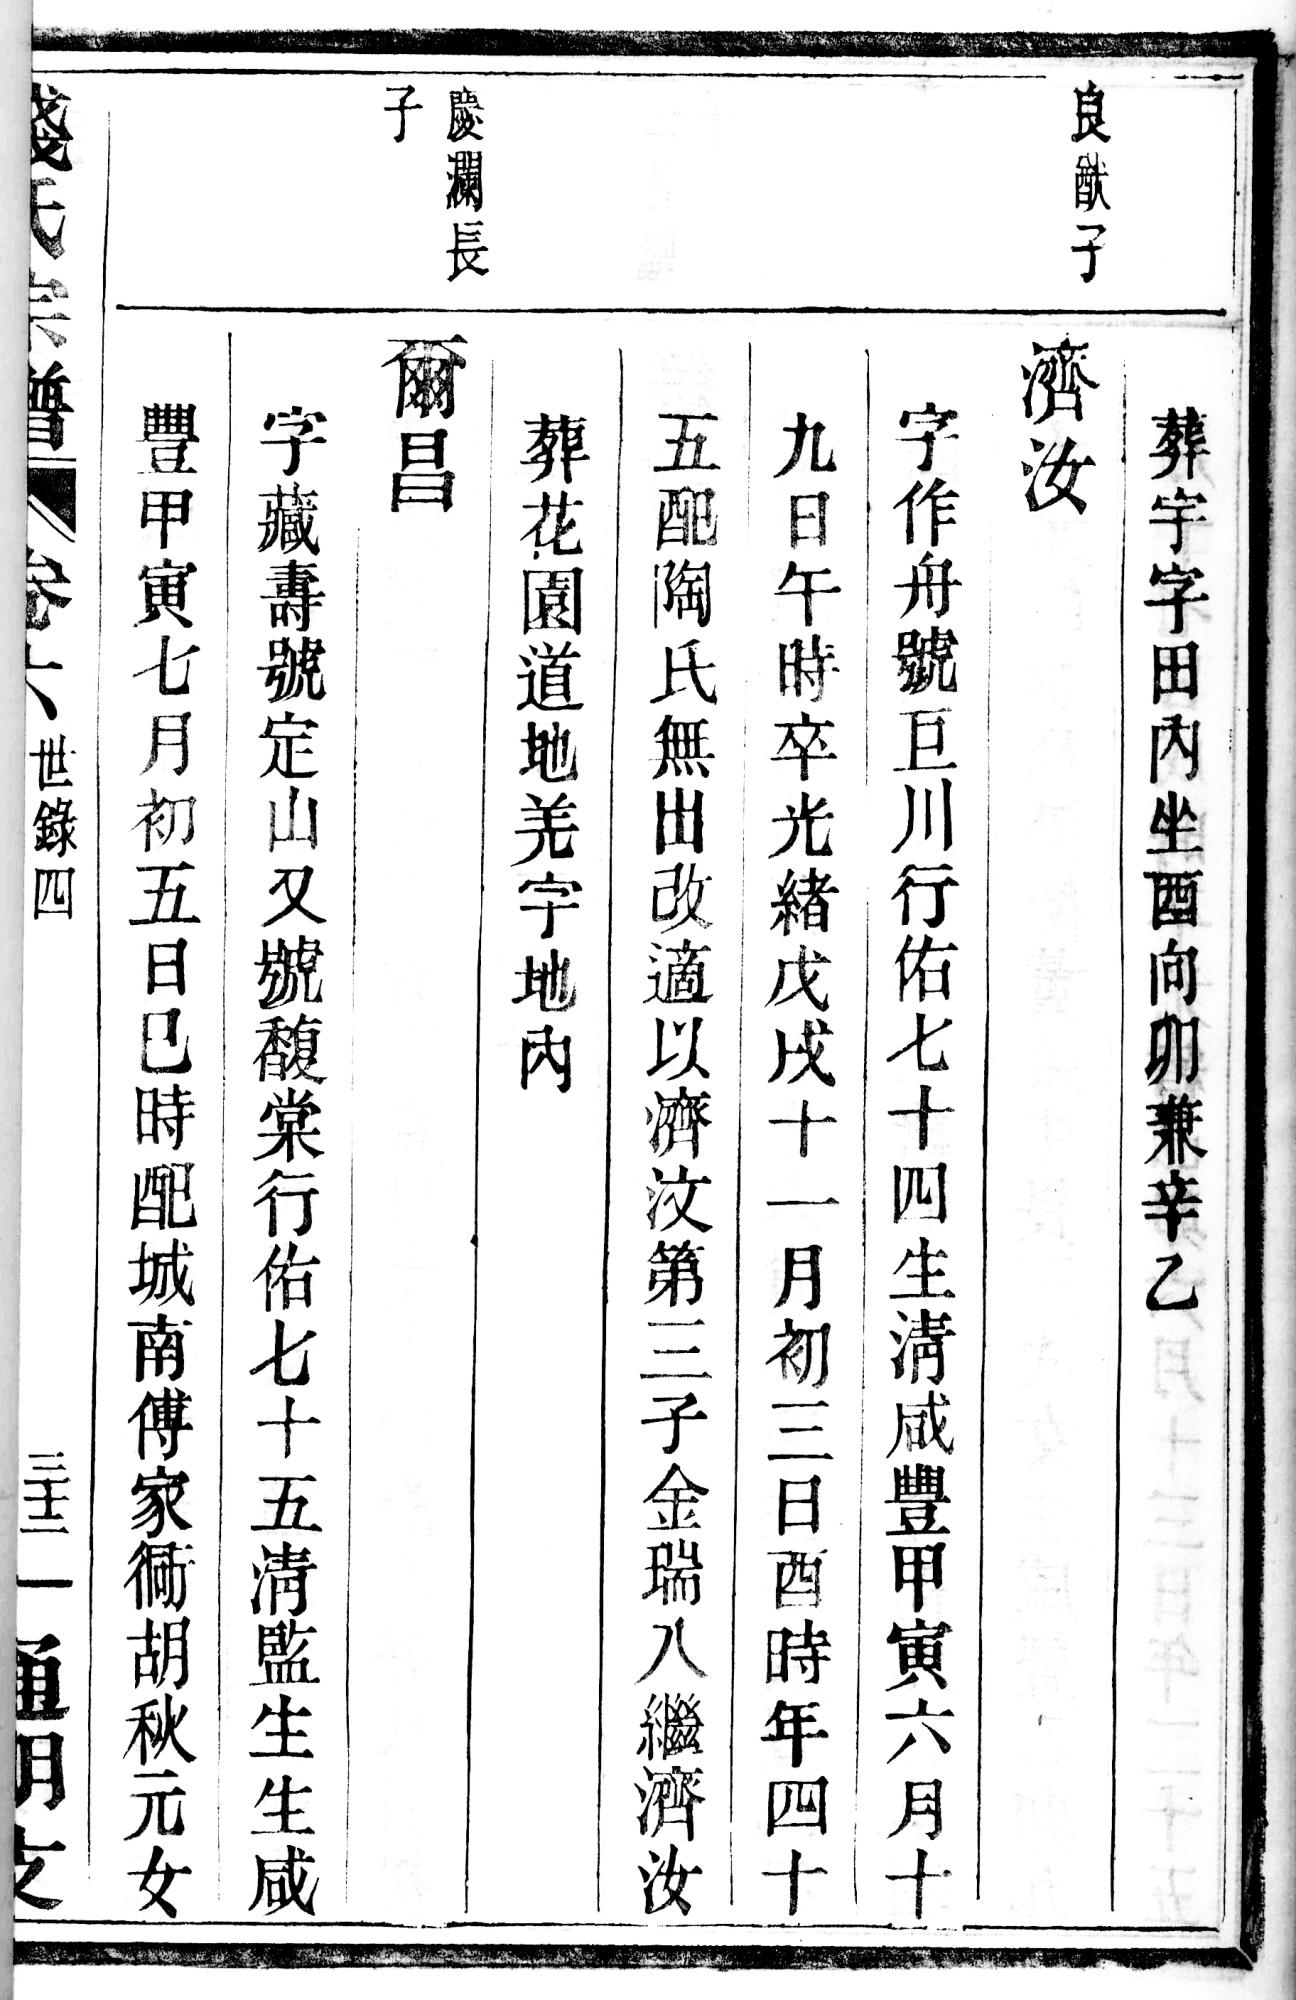 葬宇字田內坐酉向卯兼辛乙
良猷子
濟汝
字作舟號巨川行佑七十四生淸咸豐甲寅六月十
九日午時卒光緒戊戌十一月初三日酉時年四十
五配陶氏無出改適以濟汶第三子金瑞入繼濟汝
葬花園道地羌字地內
慶瀾長
子
爾昌
字藏壽號定山又號馥棠行佑七十五淸監生生咸
豐甲寅七月初五日巳時配城南傅家衕胡秋元女
錢氏宗譜
卷十六
世錄四
三十三
通明支